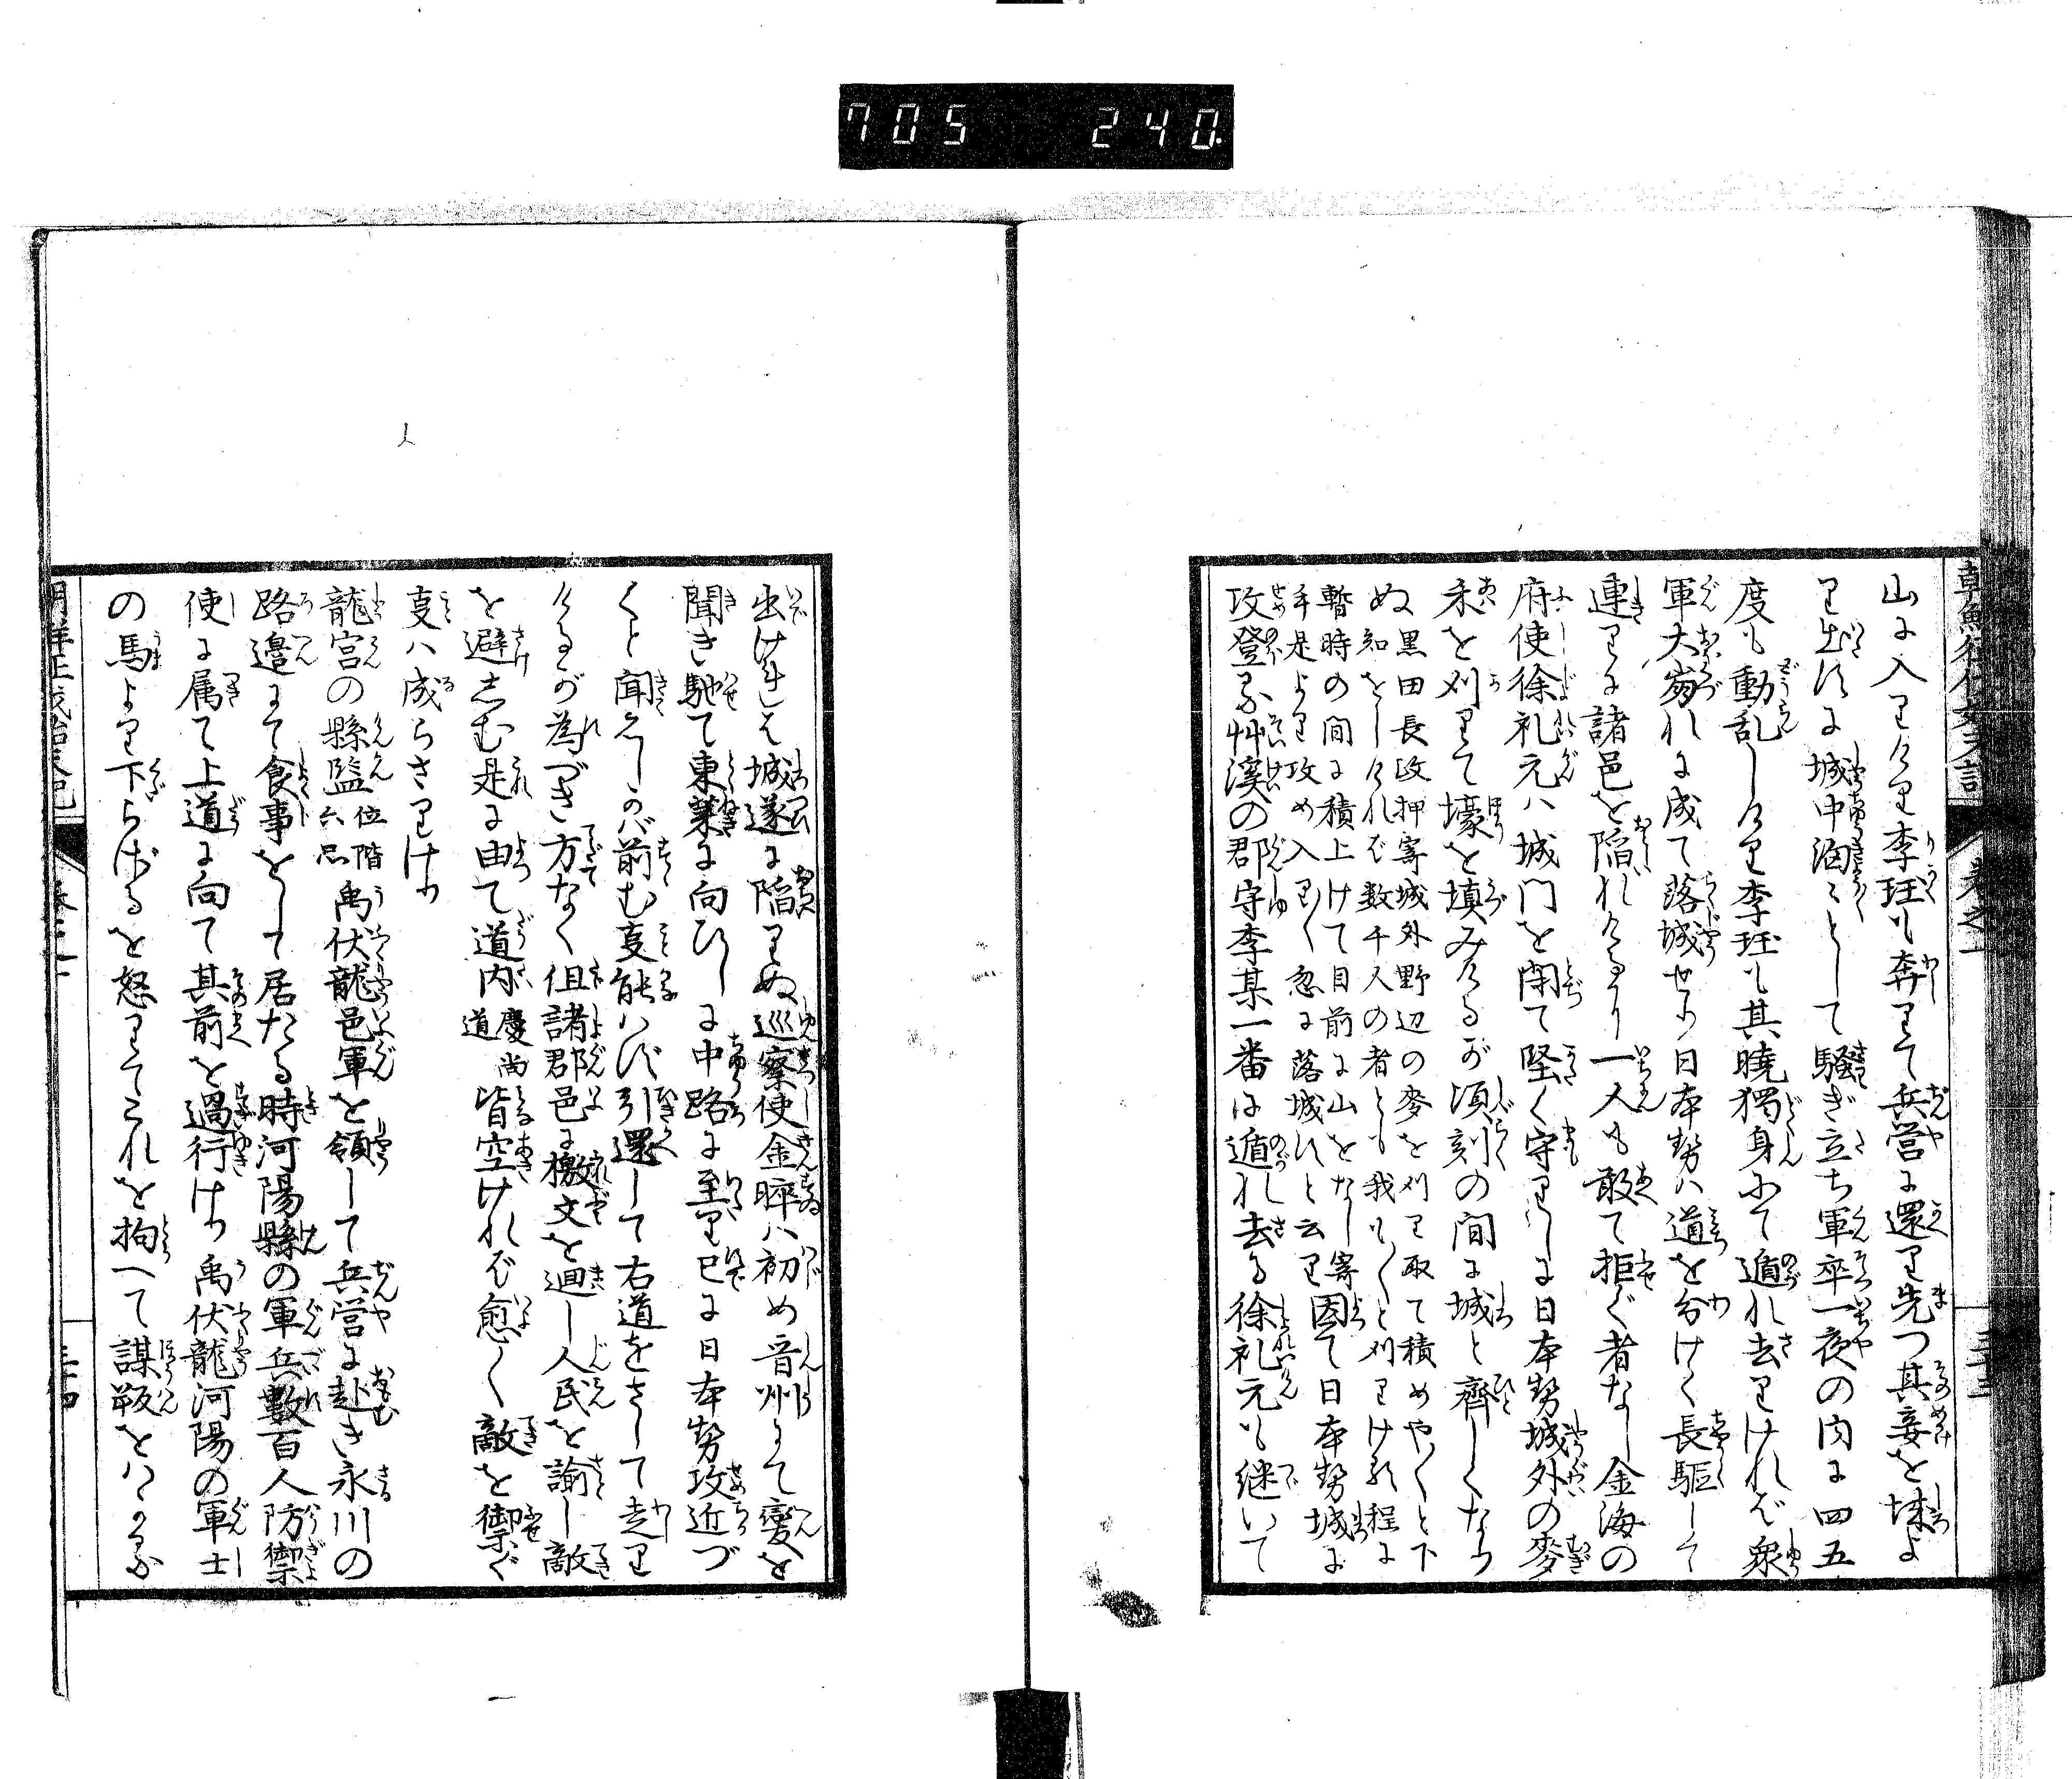 705 240
山に入りけり李珏も奔りて兵営に還り先つ其妾を城よ
り出すに城中洶々として騒ぎ立ち軍卒一夜の内に四五
度も動乱しけり李珏も其暁独身にて遁れ去りければ衆
軍大崩れに成て落城せり日本勢ハ道を分けて長駆して
連りに諸邑を陥れけるに一人も敢て拒ぐ者なし金海の
府使徐礼元ハ城門を閉て堅く守りしに日本勢城外の麥
禾を刈りて壕を填みけるが須刻の間に城と齊しくなり
ぬ黒田長政押寄城外野辺の麥を刈り取て積めや〱と下
知をしければ数千人の者ども我も〱と刈りける程に
暫時の間に積上けて目前に山をなし寄
手是より攻め入り〱忽に落城すと云り因て日本勢城に
攻登る艸溪の郡守李某一番に遁れ去る徐礼元も継いて
出ければ城遂に陥りぬ巡察使金睟ハ初め晋州にて變を
聞き馳て東莱に向ひしに中路に至り已に日本勢攻近づ
くと聞えしかバ前む亊能はず引還して右道をさして走り
けるが為べき方なく但諸郡邑に檄文を廻し人民を諭し敵
を避しむ是に由て道内慶尚道皆空ければ愈〱敵を禦ぐ
亊ハ成らさりけり
龍宮の縣監位階六品禹伏龍邑軍を領して兵営に赴き永川の
路邉にて食事をして居たる時河陽縣の軍兵數百人防禦
使に属て上道に向て其前を過行けり禹伏龍河陽の軍士
の馬より下らざるを怒りてこれを拘へて謀叛をはかる